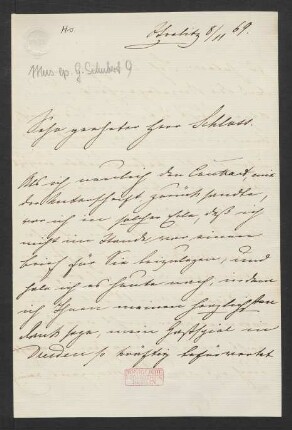 Strelitz 8/11 69.
Mus. ep. G. Schubert 9
Sehr geehrter Herr Schloss.
Als ich neulich den Contract mit
der Unterschrift zurück sandte,
war ich in solcher Eile, daß ich
nicht im Stande war einen
Brief für Sie beizulegen, und
hole ich es heute nach, indem
ich Ihnen meinen herzlichsten
Dank sage, mein Gastspiel in
Dresden so kräftig befürwortet